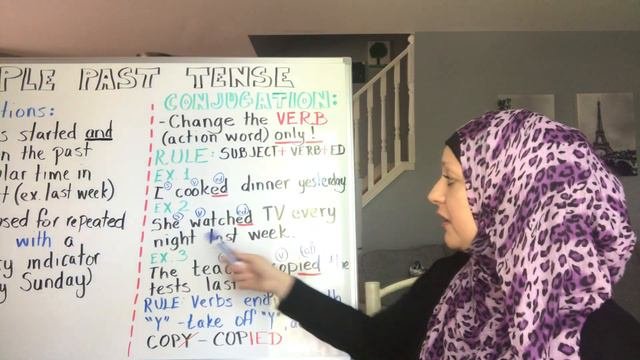 PLE PAST TENSE
tions:
s started and
n the past
lar time in
t (ex. last week)
used for repeated
with a
y indicator
y Sunday)
CONJUGATION:
- Change the VERB
(action word) only!
RULE: SUBJECT + VERB + ED
EX 1
I cooked dinner yesterday
EX 2
She watched TV every
night last week.
EX. 3
The copied the
tests
RULE: Verbs
"Y" - take off "Y",
COPY - COPIED